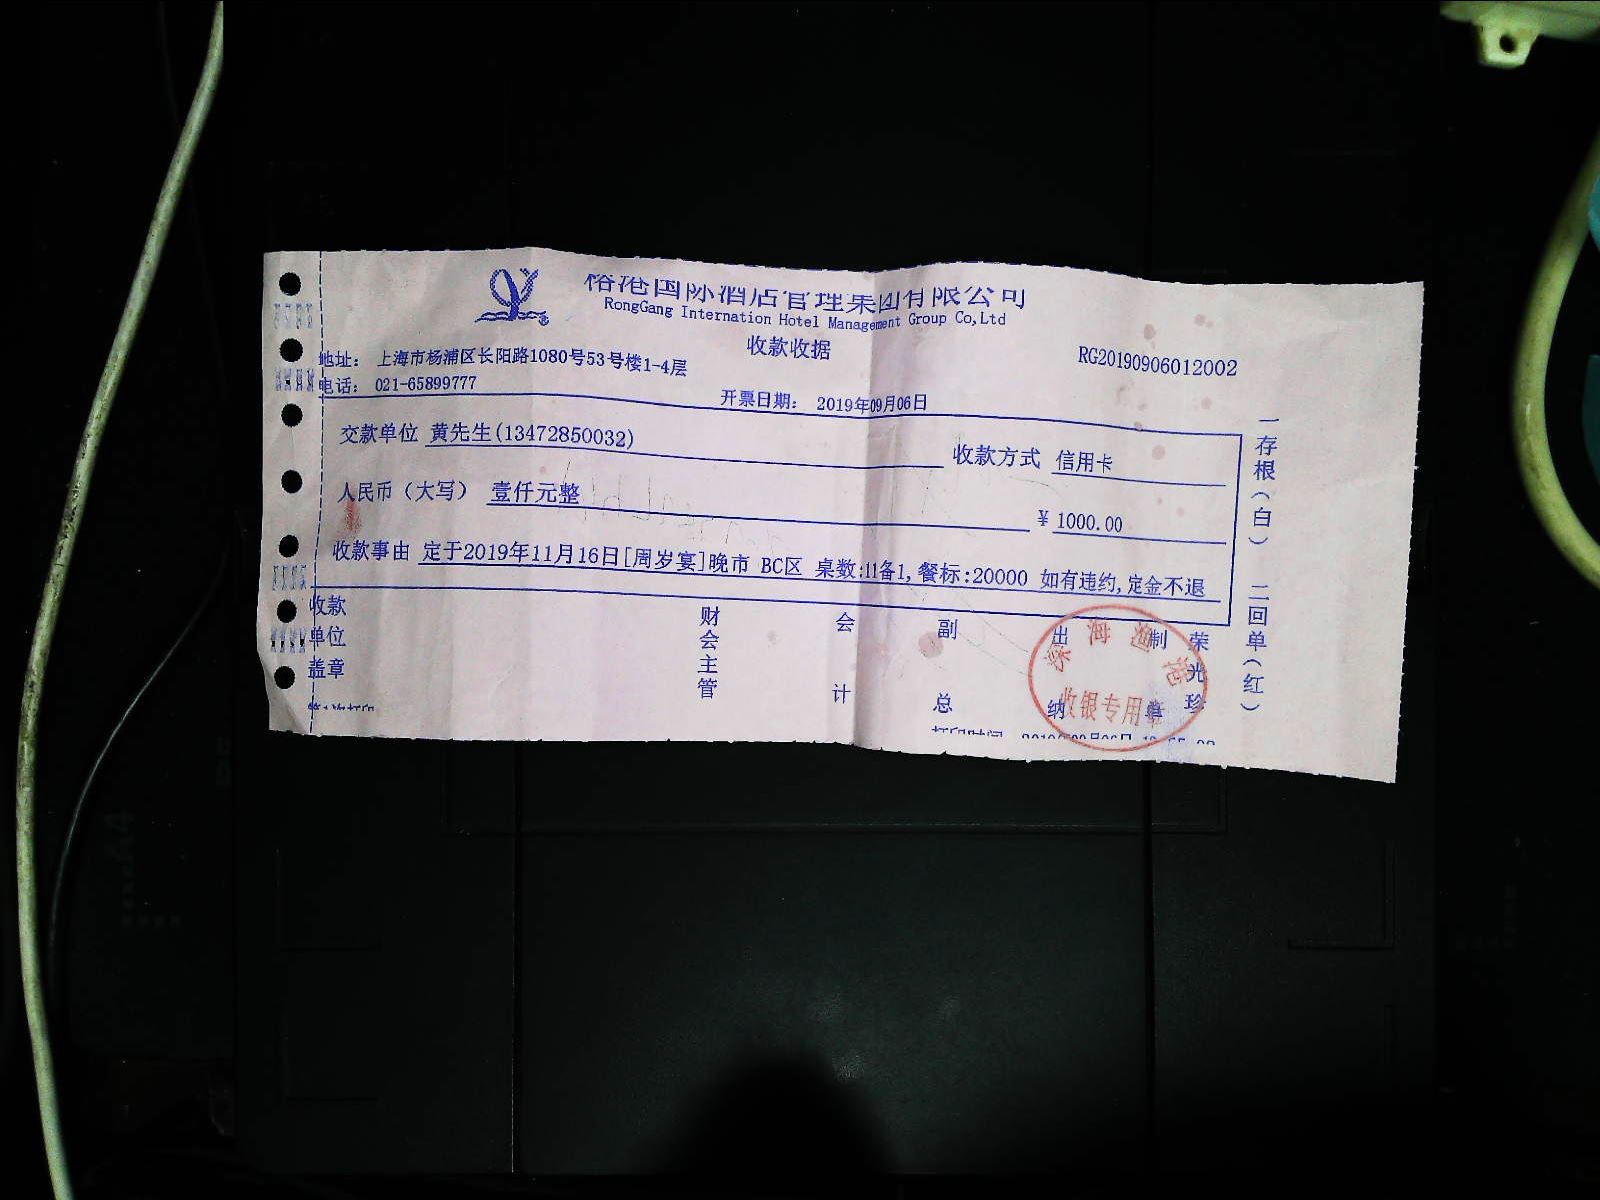 榕港国际酒店管理集团有限公司
RongGang Internation Hotel Management Group Co,Ltd
收款收据
RG20190906012002
地址： 上海市杨浦区长阳路1080号53号楼1-4层
电话： 021-65899777
开票日期： 2019年09月06日
交款单位 黄先生(13472850032)
收款方式 信用卡
人民币（大写） 壹仟元整
¥ 1000.00
收款事由 定于2019年11月16日[周岁宴]晚市 BC区 桌数:11备1,餐标:20000 如有违约,定金不退
收款单位盖章
财会主管
会计
副总
出纳
制单
荣光珍
深海渔港
收银专用章
一存根（白） 二回单（红）
打印时间